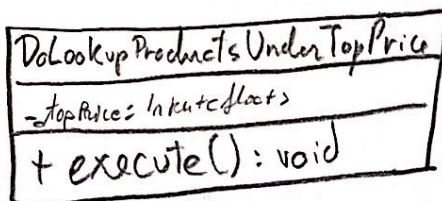 DoLookupProductsUnderTopPrice
-topPrice: Input<float>
+ execute(): void